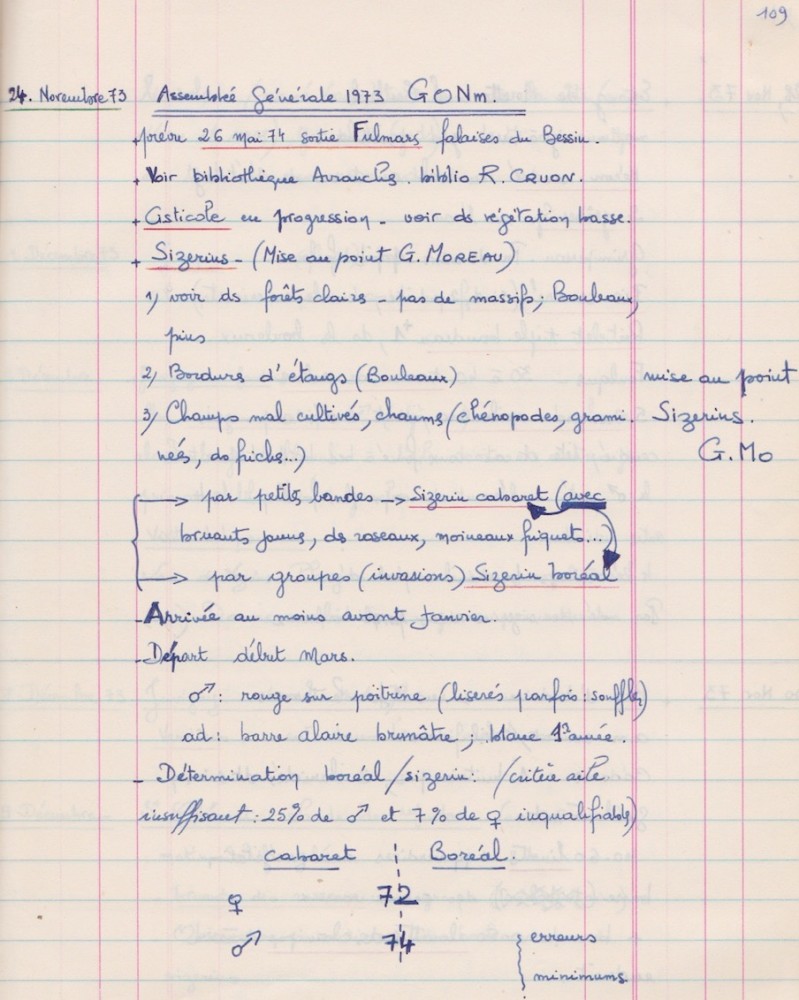 109
24. Novembre 73 Assemblée Générale 1973 GONm.
+ prévu 26 mai 74 sortie Fulmars falaises du Bessin.
+ Voir bibliothèque Avranches. biblio R. CRUON.
+ Cisticole en progression - voir ds végétation basse.
+ Sizerins - (Mise au point G. MOREAU)
1) voir ds forêts claires - pas de massifs; Bouleaux,
pins
2) Bordures d'étangs (Bouleaux) mise au point
3) Champs mal cultivés, chaumes (chénopodes, grami. Sizerins.
neés, ds friches...) G.Mo
→ par petites bandes → Sizerin cabaret (avec
bruants jaunes, des roseaux, moineaux friquets...)
→ par groupes (invasions) Sizerin boréal
- Arrivée au moins avant Janvier.
- Départ début Mars.
♂: rouge sur poitrine (liserés parfois: souffles)
ad: barre alaire brunâtre; blanc 1° année.
- Détermination boréal/sizerin: /critère aile
insuffisant: 25% de ♂ et 7% de ♀ inqualifiables)
cabaret Boréal.
♀ 72
♂ 74 erreurs
minimums